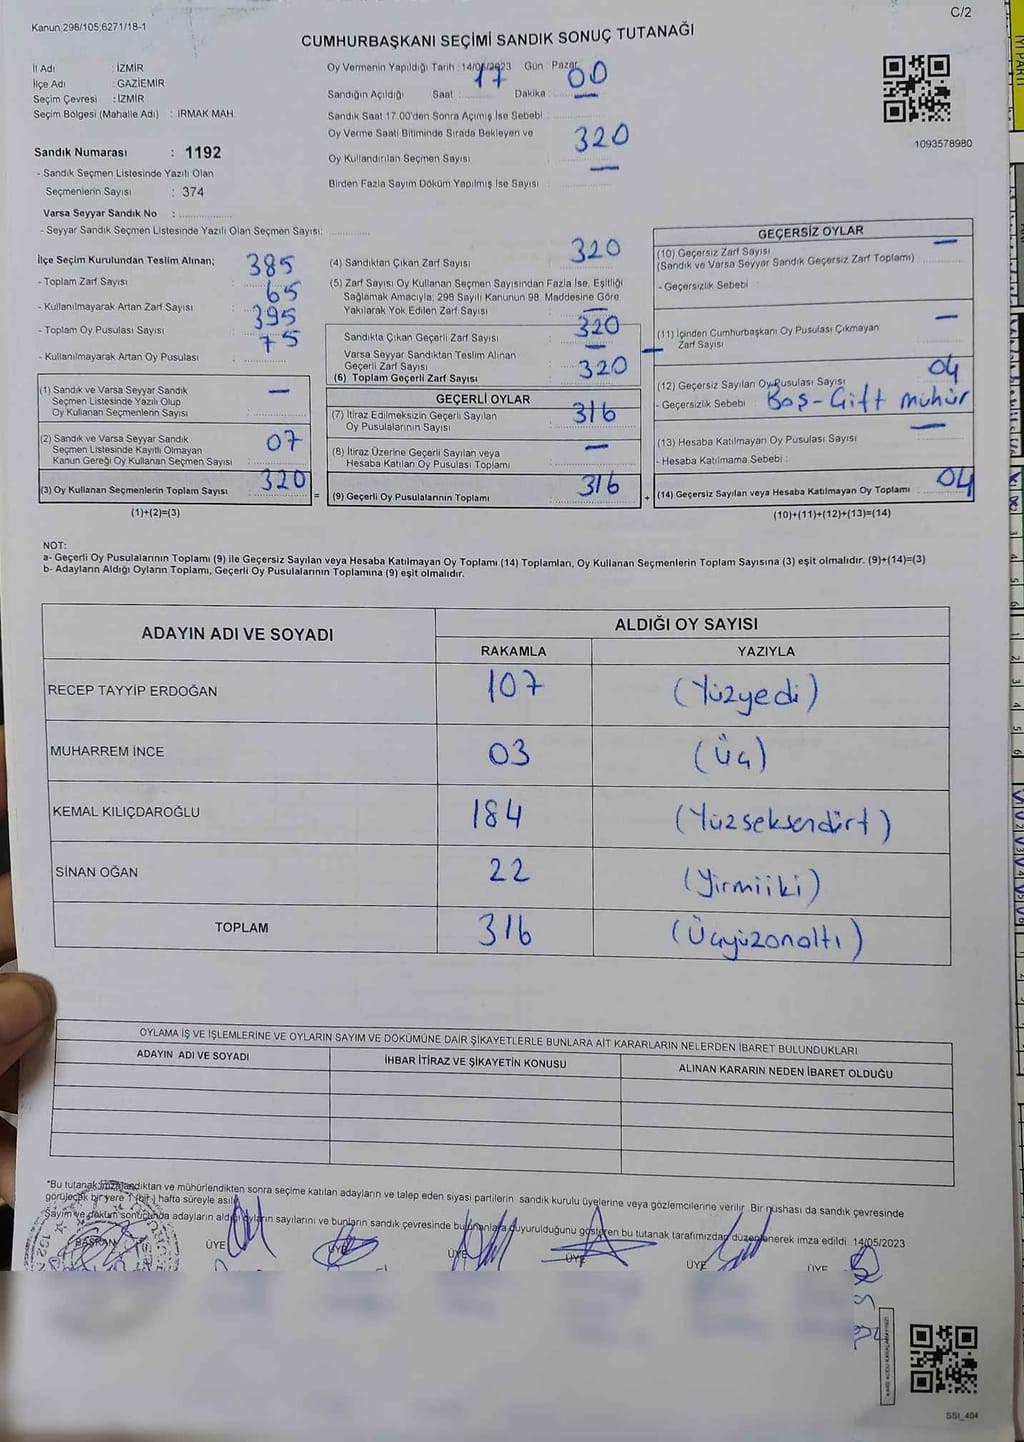 C/2
Kanun 298/105,6271/18-1
CUMHURBAŞKANI SEÇİMİ SANDIK SONUÇ TUTANAĞI
İl Adı : İZMİR
İlçe Adı : GAZİEMİR
Seçim Çevresi : İZMİR
Seçim Bölgesi (Mahalle Adı) : IRMAK MAH.
Sandık Numarası : 1192
- Sandık Seçmen Listesinde Yazılı Olan
Seçmenlerin Sayısı : 374
Varsa Seyyar Sandık No :
- Seyyar Sandık Seçmen Listesinde Yazılı Olan Seçmen Sayısı:
Oy Vermenin Yapıldığı Tarih : 14/05/2023 Gün : Pazar
Sandığın Açıldığı Saat : 17 Dakika : 00
Sandık Saat 17.00'den Sonra Açımış İse Sebebi :
Oy Verme Saati Bitiminde Sırada Bekleyen ve
Oy Kullandırılan Seçmen Sayısı 320
Birden Fazla Sayım Döküm Yapılmış İse Sayısı —
1093578980
İlçe Seçim Kurulundan Teslim Alınan;
- Toplam Zarf Sayısı : 385
- Kullanılmayarak Artan Zarf Sayısı : 65
- Toplam Oy Pusulası Sayısı : 395
- Kullanılmayarak Artan Oy Pusulası : 75
(1) Sandık ve Varsa Seyyar Sandık
Seçmen Listesinde Yazılı Olup
Oy Kullanan Seçmenlerin Sayısı : —
(2) Sandık ve Varsa Seyyar Sandık
Seçmen Listesinde Kayıtlı Olmayan
Kanun Gereği Oy Kullanan Seçmen Sayısı : 07
(3) Oy Kullanan Seçmenlerin Toplam Sayısı : 320
(1)+(2)=(3)
(4) Sandıktan Çıkan Zarf Sayısı : 320
(5) Zarf Sayısı Oy Kullanan Seçmen Sayısından Fazla İse, Eşitliği
Sağlamak Amacıyla; 298 Sayılı Kanunun 98. Maddesine Göre
Yakılarak Yok Edilen Zarf Sayısı : —
Sandıkta Çıkan Geçerli Zarf Sayısı : 320
Varsa Seyyar Sandıktan Teslim Alınan
Geçerli Zarf Sayısı : —
(6) Toplam Geçerli Zarf Sayısı : 320
GEÇERLİ OYLAR
(7) İtiraz Edilmeksizin Geçerli Sayılan
Oy Pusulalarının Sayısı : 316
(8) İtiraz Üzerine Geçerli Sayılan veya
Hesaba Katılan Oy Pusulası Toplamı : —
= (9) Geçerli Oy Pusulalarının Toplamı : 316 +
GEÇERSİZ OYLAR
(10) Geçersiz Zarf Sayısı —
(Sandık ve Varsa Seyyar Sandık Geçersiz Zarf Toplamı)
- Geçersizlik Sebebi :
(11) İçinden Cumhurbaşkanı Oy Pusulası Çıkmayan
Zarf Sayısı —
(12) Geçersiz Sayılan Oy Pusulası Sayısı 04
- Geçersizlik Sebebi : Boş-Çift mühür
(13) Hesaba Katılmayan Oy Pusulası Sayısı —
- Hesaba Katılmama Sebebi :
(14) Geçersiz Sayılan veya Hesaba Katılmayan Oy Toplamı : 04
(10)+(11)+(12)+(13)=(14)
NOT:
a- Geçerli Oy Pusulalarının Toplamı (9) ile Geçersiz Sayılan veya Hesaba Katılmayan Oy Toplamı (14) Toplamları, Oy Kullanan Seçmenlerin Toplam Sayısına (3) eşit olmalıdır. (9)+(14)=(3)
b- Adayların Aldığı Oyların Toplamı, Geçerli Oy Pusulalarının Toplamına (9) eşit olmalıdır.
ADAYIN ADI VE SOYADI ALDIĞI OY SAYISI
RAKAMLA YAZIYLA
RECEP TAYYİP ERDOĞAN 107 (Yüzyedi)
MUHARREM İNCE 03 (Üç)
KEMAL KILIÇDAROĞLU 184 (Yüzseksendört)
SİNAN OĞAN 22 (Yirmiiki)
TOPLAM 316 (Üçyüzonaltı)
OYLAMA İŞ VE İŞLEMLERİNE VE OYLARIN SAYIM VE DÖKÜMÜNE DAİR ŞİKAYETLERLE BUNLARA AİT KARARLARIN NELERDEN İBARET BULUNDUKLARI
ADAYIN ADI VE SOYADI İHBAR İTİRAZ VE ŞİKAYETİN KONUSU ALINAN KARARIN NEDEN İBARET OLDUĞU
*Bu tutanak imzalandıktan ve mühürlendikten sonra seçime katılan adayların ve talep eden siyasi partilerin sandık kurulu üyelerine veya gözlemcilerine verilir. Bir nushası da sandık çevresinde
görülecek bir yere 1 (bir) hafta süreyle asılır.
Sayım ve döküm sonucunda adayların aldığı oyların sayılarını ve bunların sandık çevresinde bulunanlara duyurulduğunu gösteren bu tutanak tarafımızdan düzenlenerek imza edildi. 14/05/2023
BAŞKAN ÜYE ÜYE ÜYE ÜYE ÜYE ÜYE
SSI_404